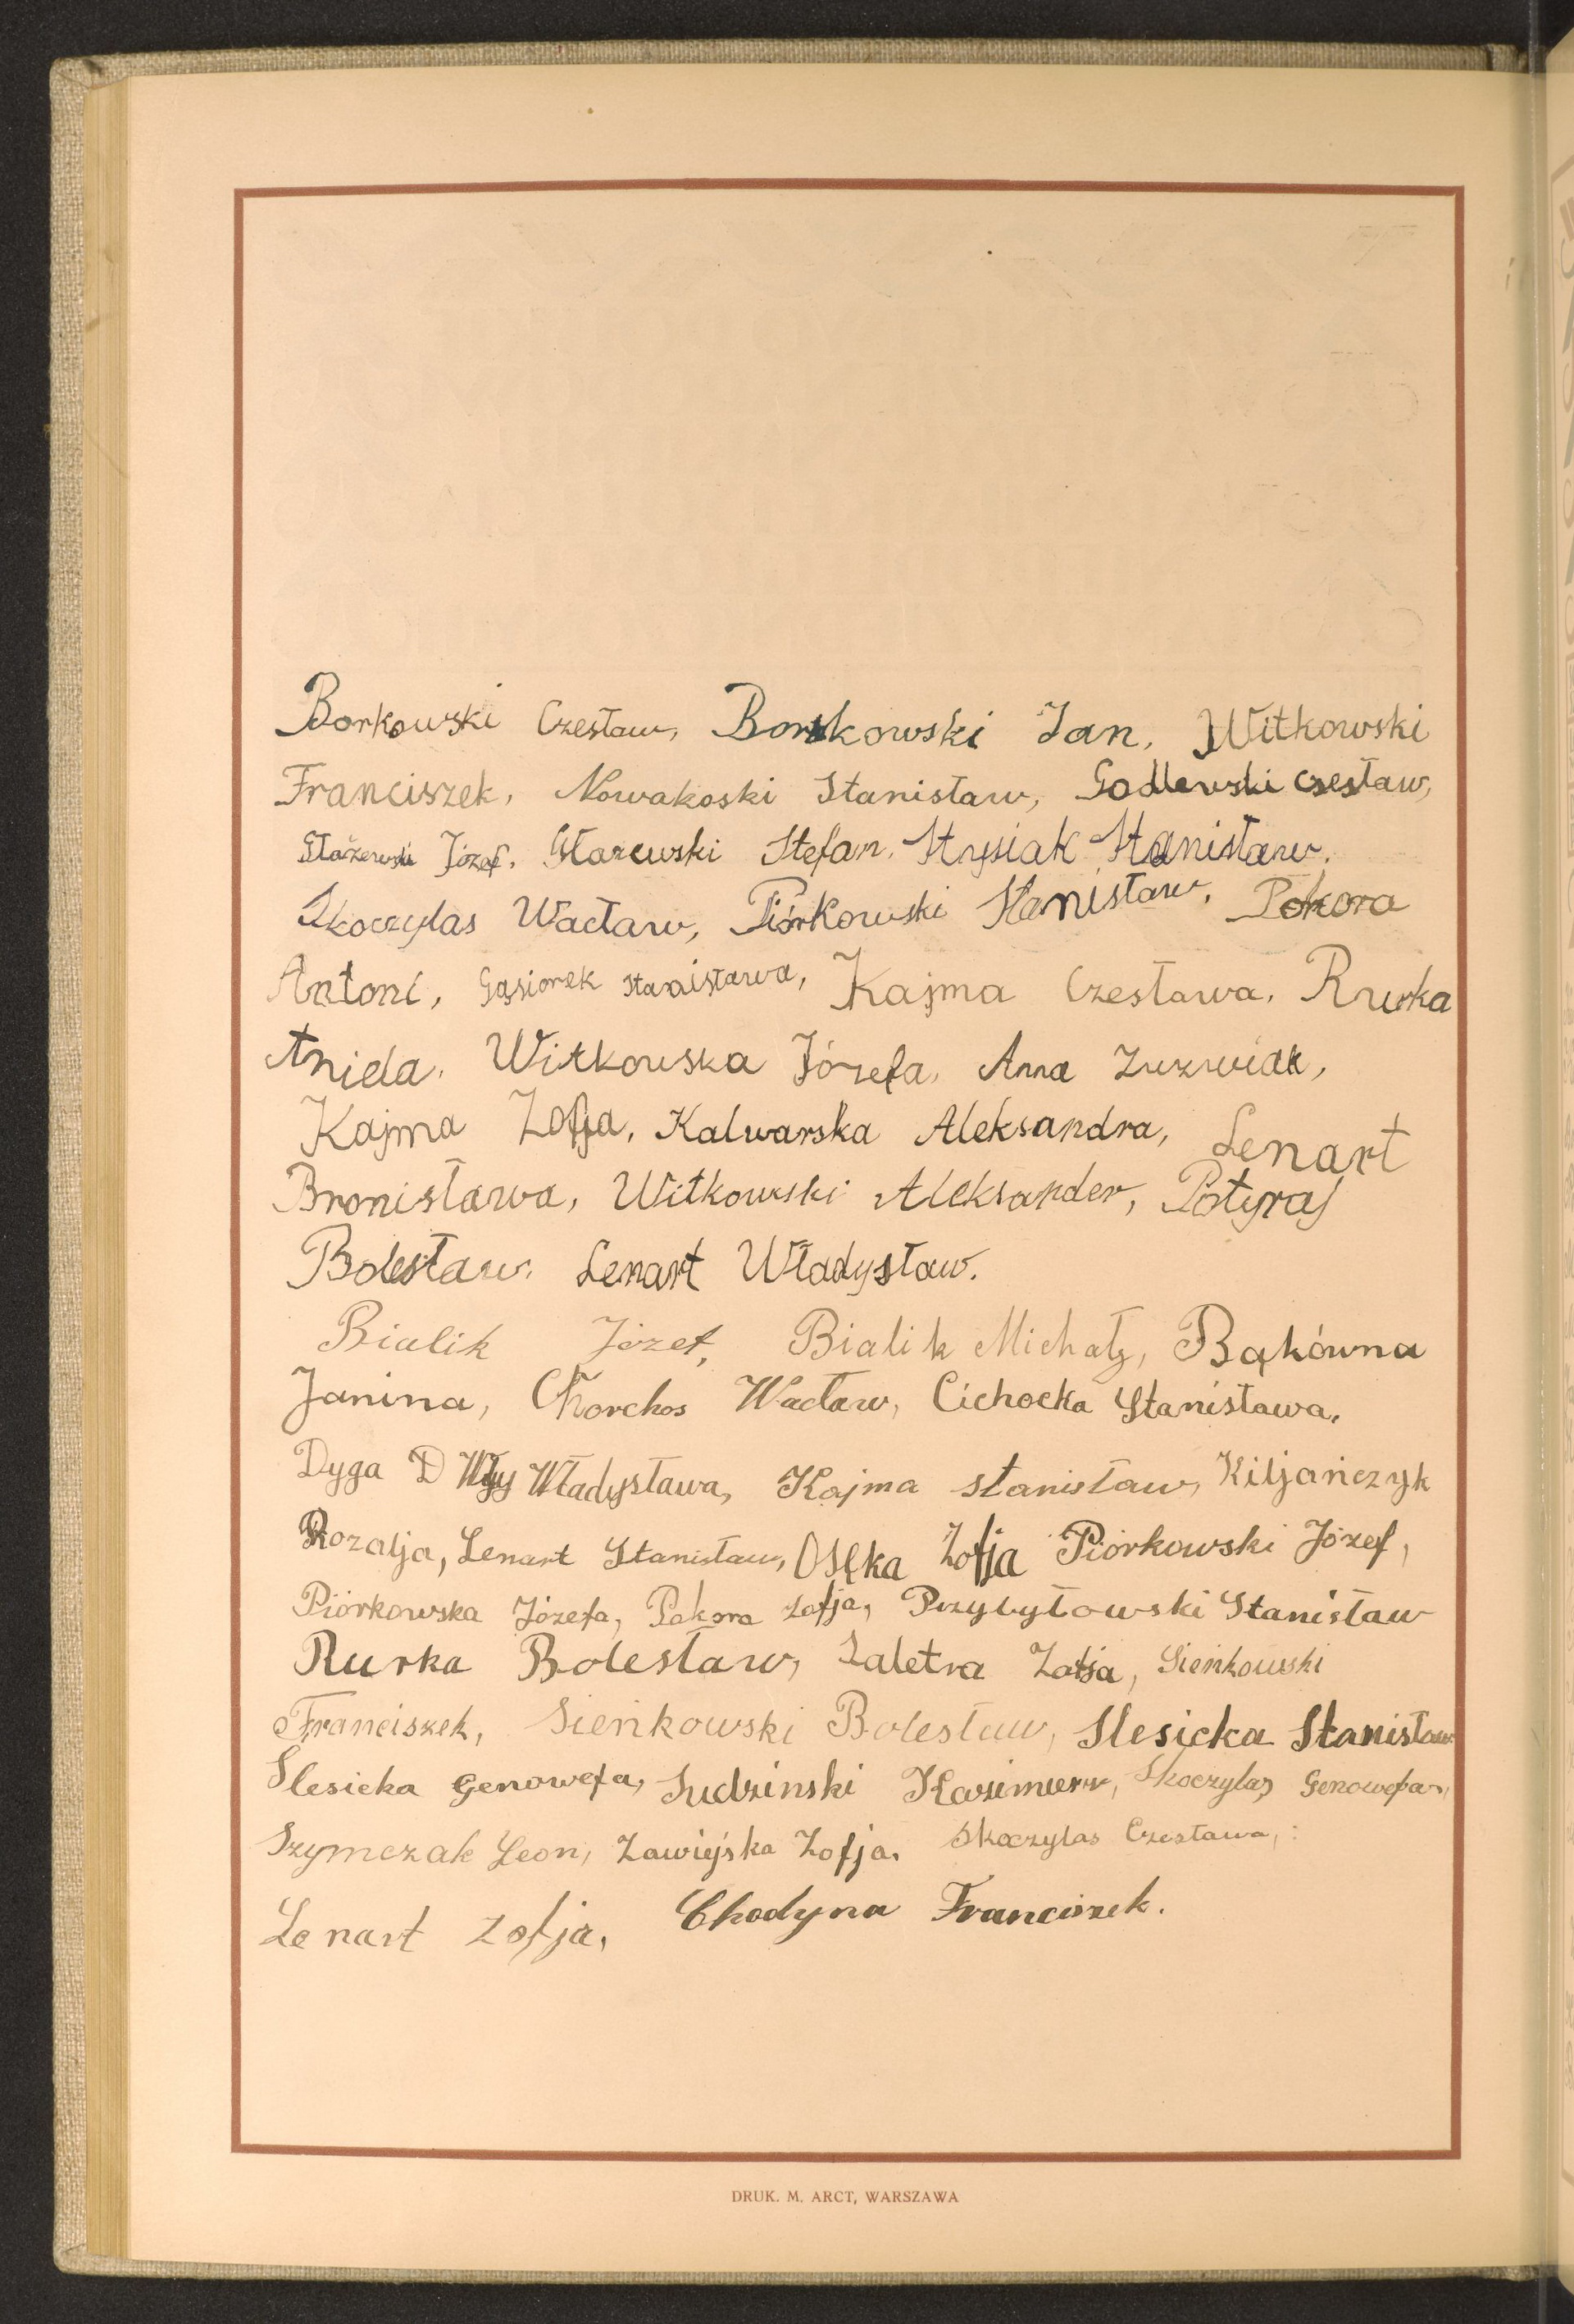 Borkowski Czesław, Borkowski Jan, Witkowski
Franciszek, Nowakoski Stanisław, Godlewski Czesław,
Stażewski Józef, Starewski Stefan, Strysiak Stanisław,
Skoczylas Wacław, Piórkowski Stanisław, Pokora
Antoni, Gąsiorek Stanisława, Kajma Czesława, Rurka
Aniela, Witkowska Józefa, Anna Zuzwiak,
Kajma Zofja, Kalwarska Aleksandra, Lenart
Bronisława, Witkowski Aleksander, Potyraj
Bolesław, Lenart Władysław.
Bialik Józef, Bialik Michał, Bąkówna
Janina, Chorchos Wacław, Cichocka Stanisława,
Dyga D Władysława, Kajma Stanisław, Kiljańczyk
Rozalja, Lenart Stanisław, Osęka Zofja Piórkowski Józef,
Piórkowska Józefa, Pokora Zofja, Przybyłowski Stanisław
Rurka Bolesław, Saletra Zofja, Sieńkowski
Franciszek, Sieńkowski Bolesław, Slesicka Stanisław
Slesicka Genowefa, Sudzinski Kazimierz, Skoczylas Genowefa,
Szymczak Leon, Zawiejska Zofja. Skoczylas Czesława,
Lenart Zofja, Chodyna Franciszek.
DRUK. M. ARCT, WARSZAWA